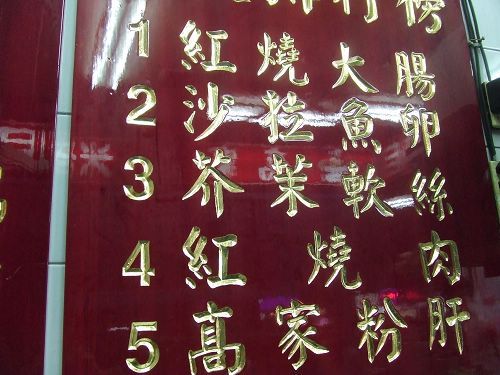 1 紅燒大腸
2 沙拉魚卵
3 芥茉軟絲
4 紅燒肉
5 高家粉肝